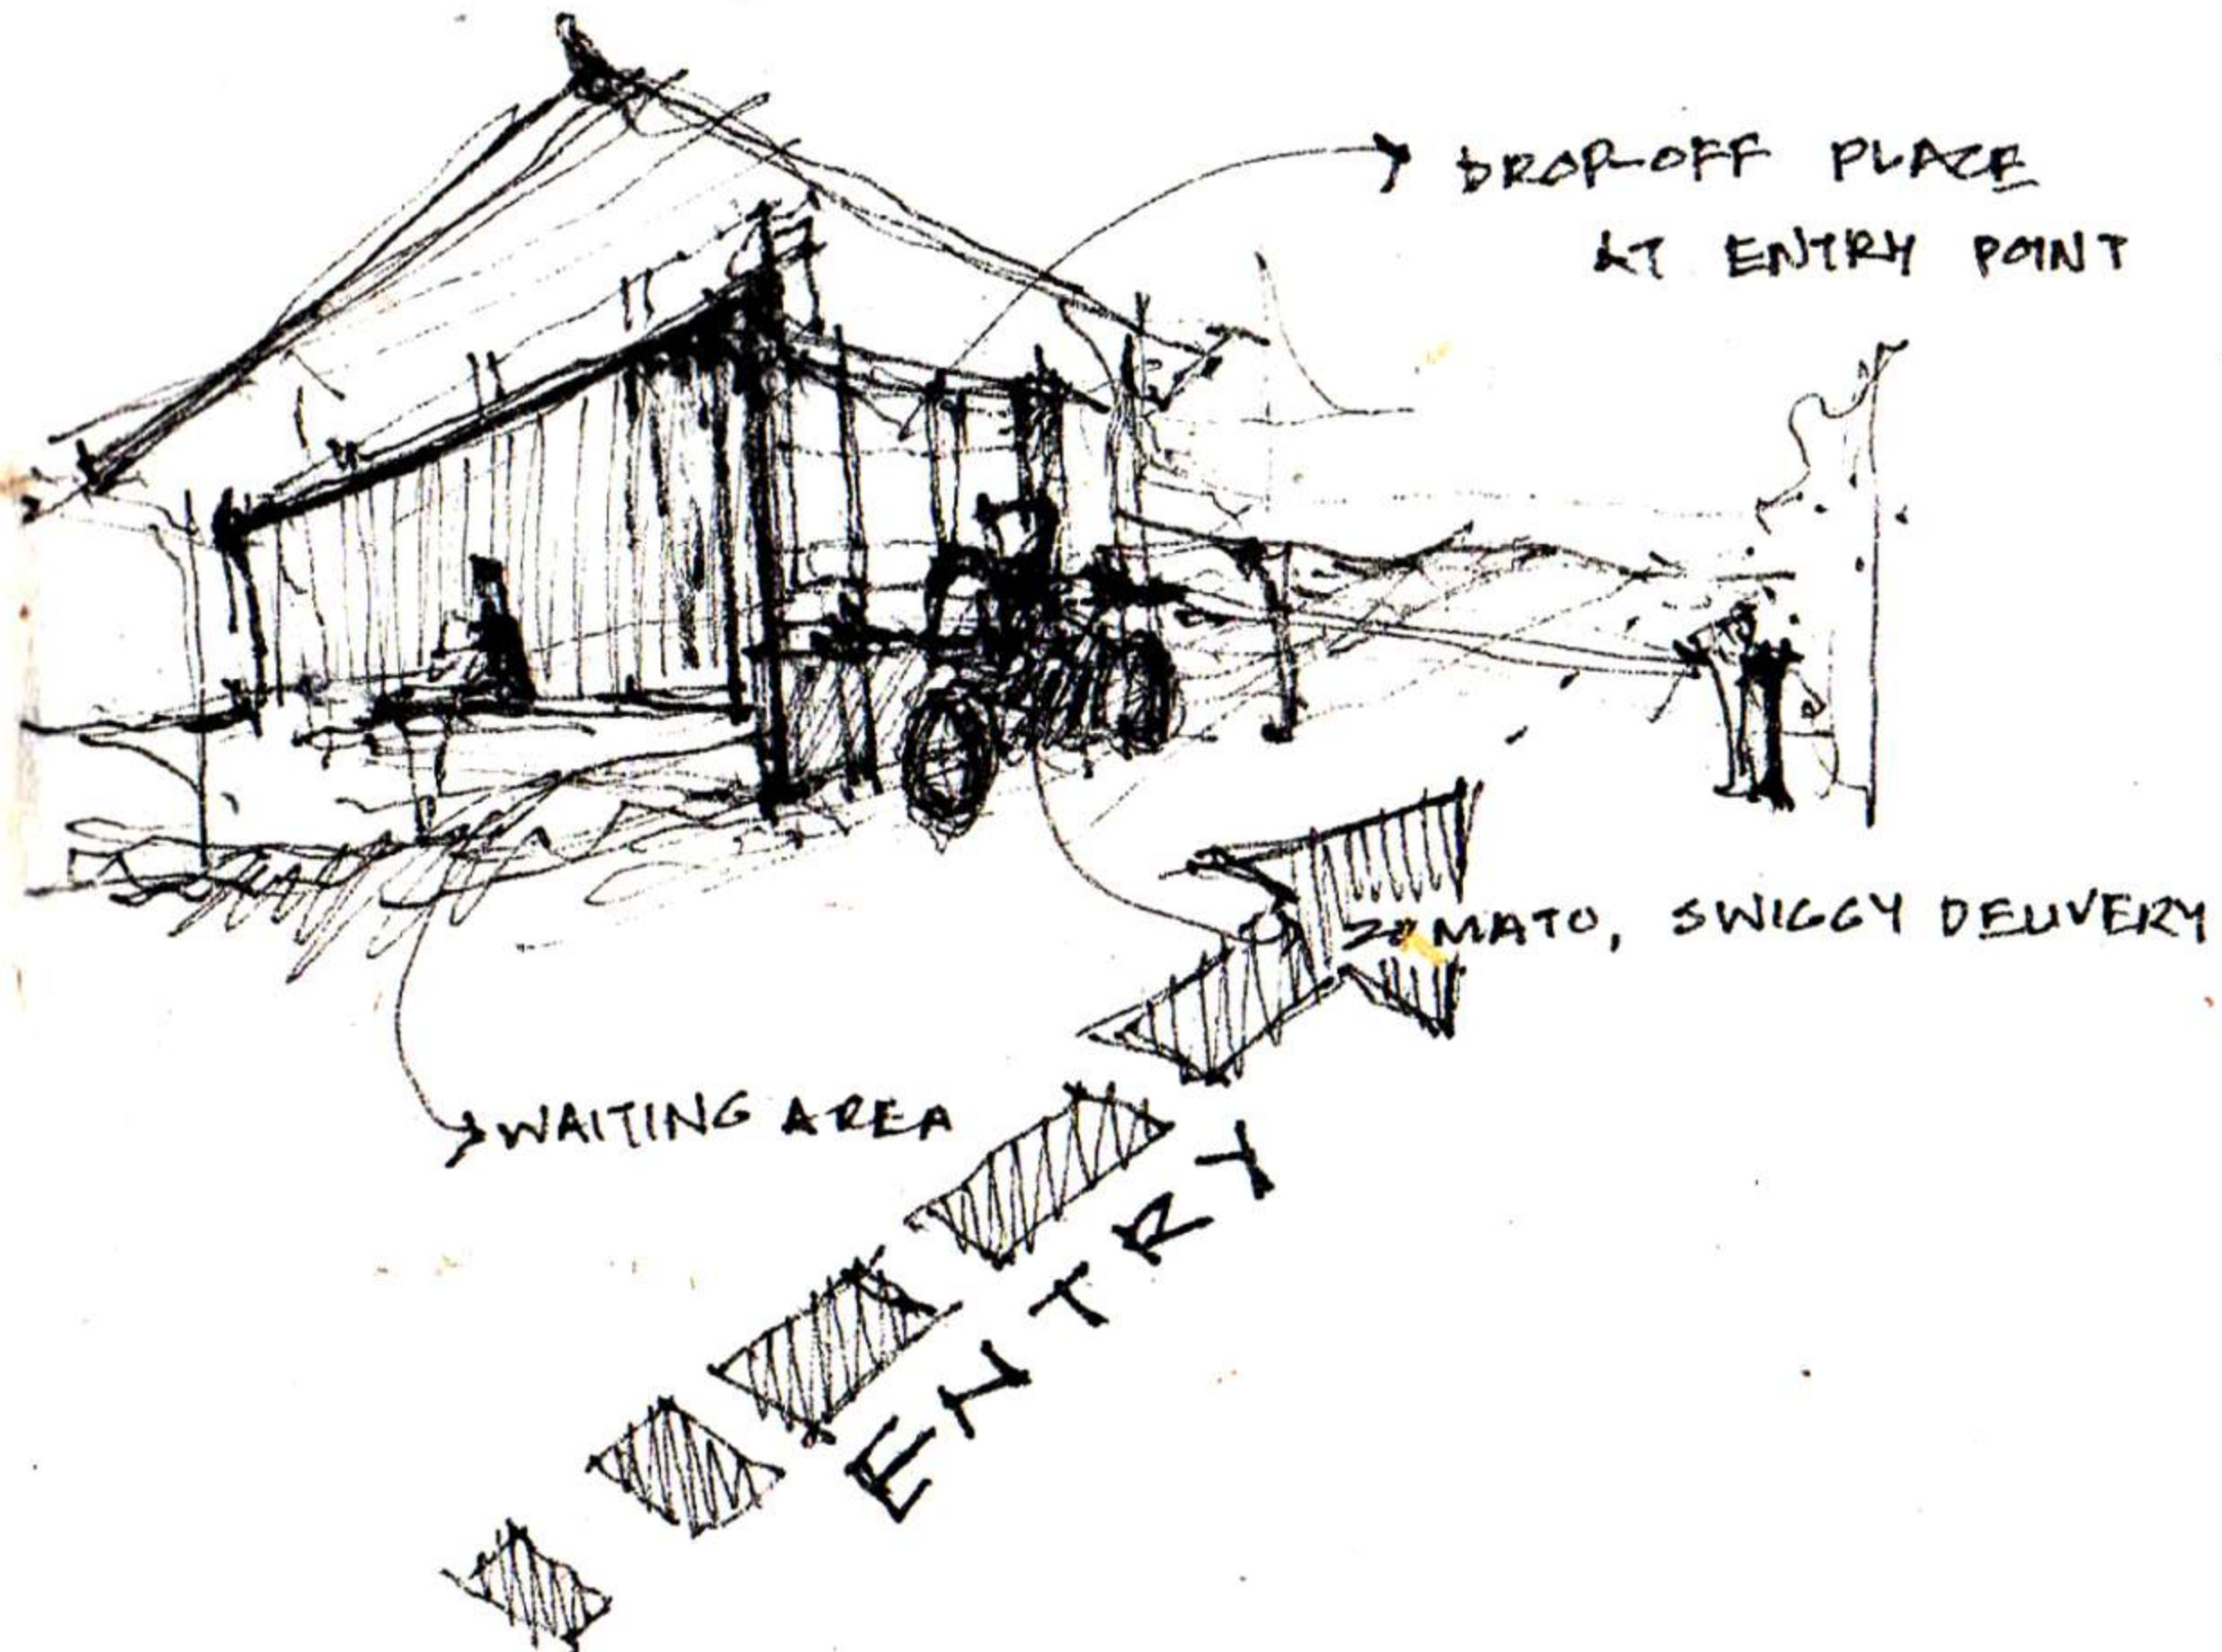 DROP-OFF PLACE
AT ENTRY POINT
ZOMATO, SWIGGY DELIVERY
WAITING AREA
ENTRY